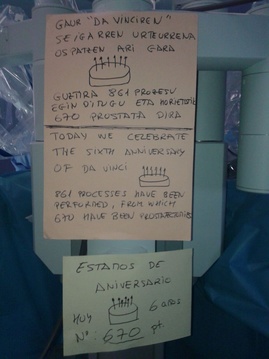 GAUR "DA VINCIREN"
SEIGARREN URTEURRENA
OSPATZEN ARI GARA
GUZTIRA 861 PROZESU
EGIN DITUGU ETA HORIETATIK
670 PROSTATA DIRA
TODAY WE CELEBRATE
THE SIXTH ANNIVERSARY
OF DA VINCI
861 PROCESSES HAVE BEEN
PERFORMED, FROM WHICH
670 HAVE BEEN
ESTAMOS DE
ANIVERSARIO
HUY 6 años
Nº: 670 pt